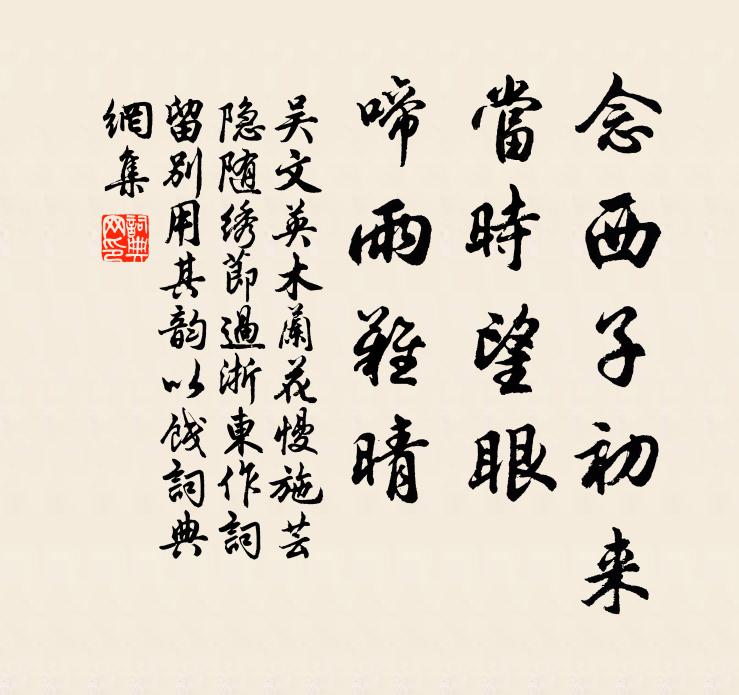 念西子初来
當時望眼
啼雨難晴
吴文英木蘭花慢施芸
隐随绣節過浙東作詞
留别用其韵以餞詞典
網集
詞典
网印